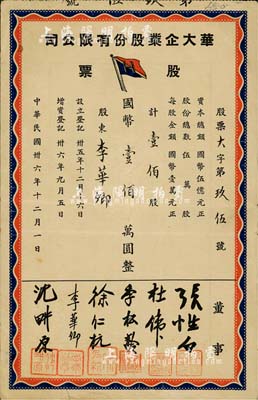 華大企業股份有限公司
股票
股票大字第玖伍號
資本總額 國幣伍億元正
股份總數 伍萬股
每股金額 國幣壹萬元正
計壹佰股
國幣壹佰萬圓整
股東 李華卿
設立登記 卅五年十二月六日
增資登記 卅六年九月五日
中華民國卅六年十二月一日
董事
杜偉
徐仁杭
李華卿